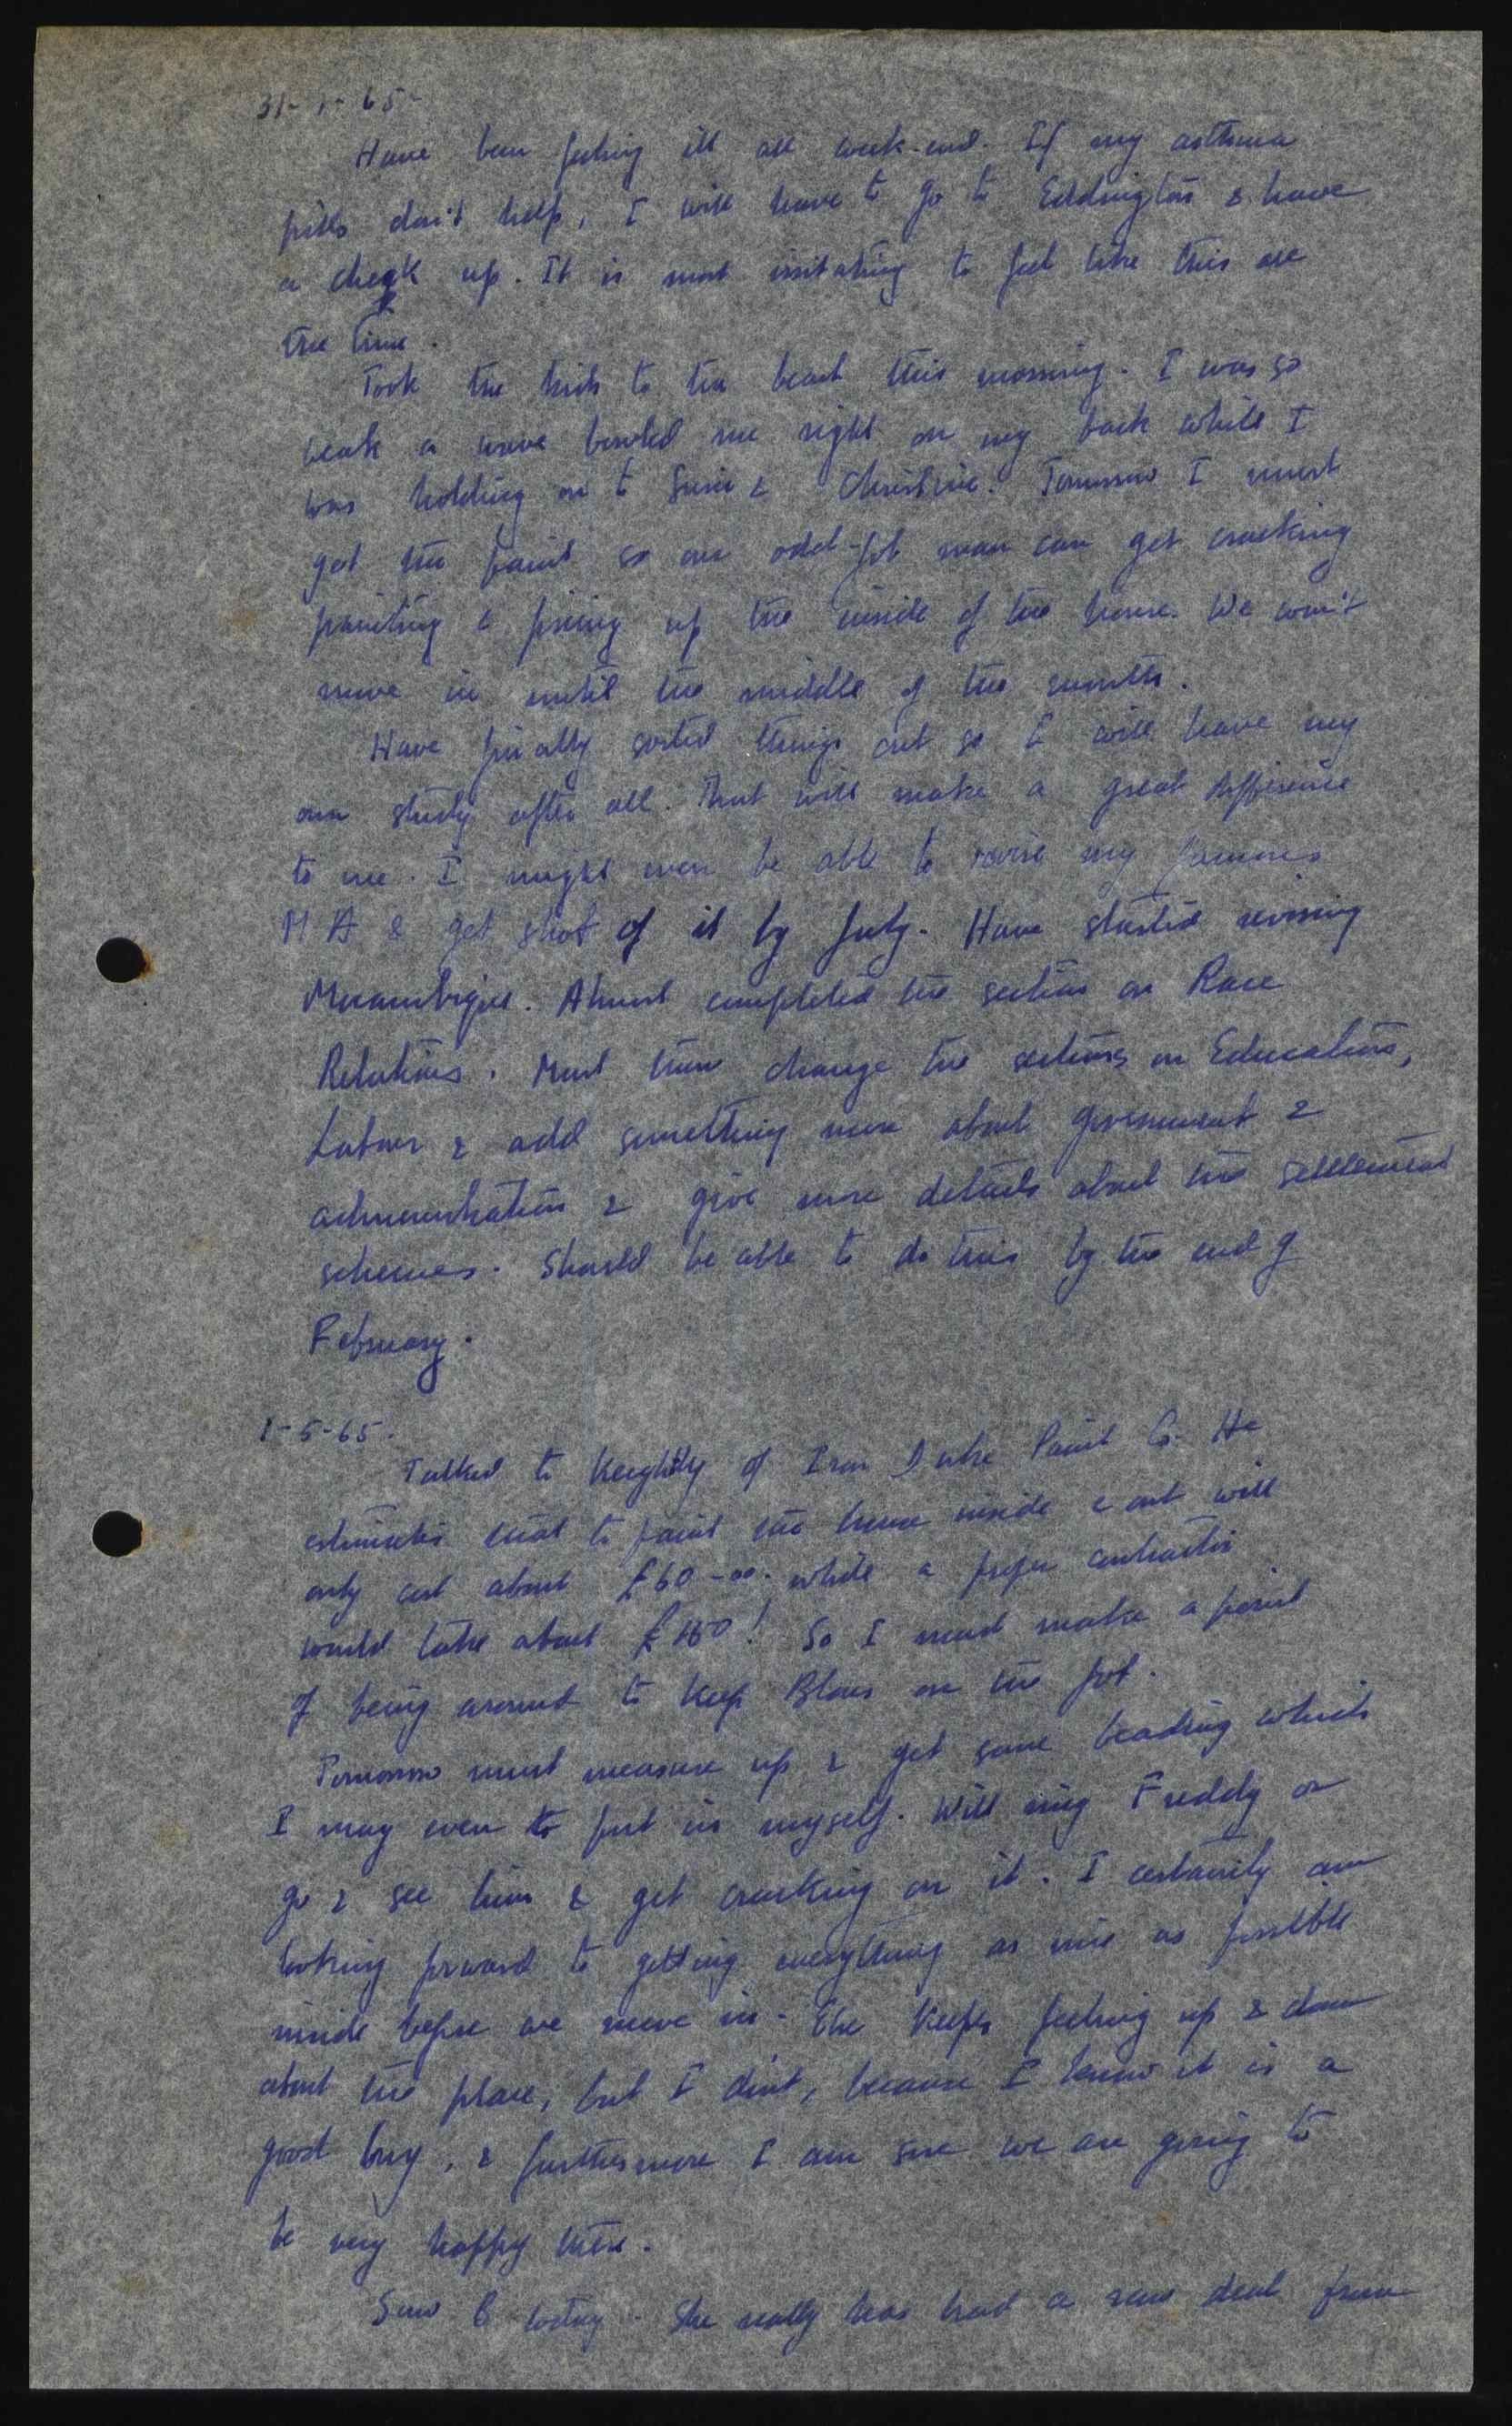 31-1-65-
Have been feeling ill all week-end. If my asthma
pills don't help, I will have to go to Eddington & have
a check up. It is most irritating to feel like this all
the time.
Took the kids to the beach this morning. I was so
weak a wave bowled me right on my back while I
was holding on to Susie & Christine. Tomorrow I must
get the paint so our odd-job man can get cracking
painting & fixing up the inside of the house. We won't
move in until the middle of the month.
Have finally sorted things out so I will have my
own study after all. That will make a great difference
to me. I might even be able to revise my famous
M A & get shot of it by July. Have started revising
Mocambique. Almost completed the section on Race
Relations. Must then change the sections on Education,
Labour & add something more about government &
administration & give more details about the settlement
schemes. Should be able to do this by the end of
February.
1-5-65.
Talked to Keightly of Iron Duke Paint Co. He
estimates that to paint the house inside & out will
only cost about £60-00. while a proper contractor
would take about £150! So I must make a point
of being around to keep Blous on the job.
Tomorrow must measure up & get some beading which
I may even to put in myself. Will ring Freddy or
go & see him & get cracking on it. I certainly am
looking forward to getting everything as nice as possible
inside before we move in. Else keeps feeling up & down
about the place, but I don't, because I know it is a
good buy, & furthermore I am sure we are going to
be very happy there.
Saw B today. She really has had a raw deal from